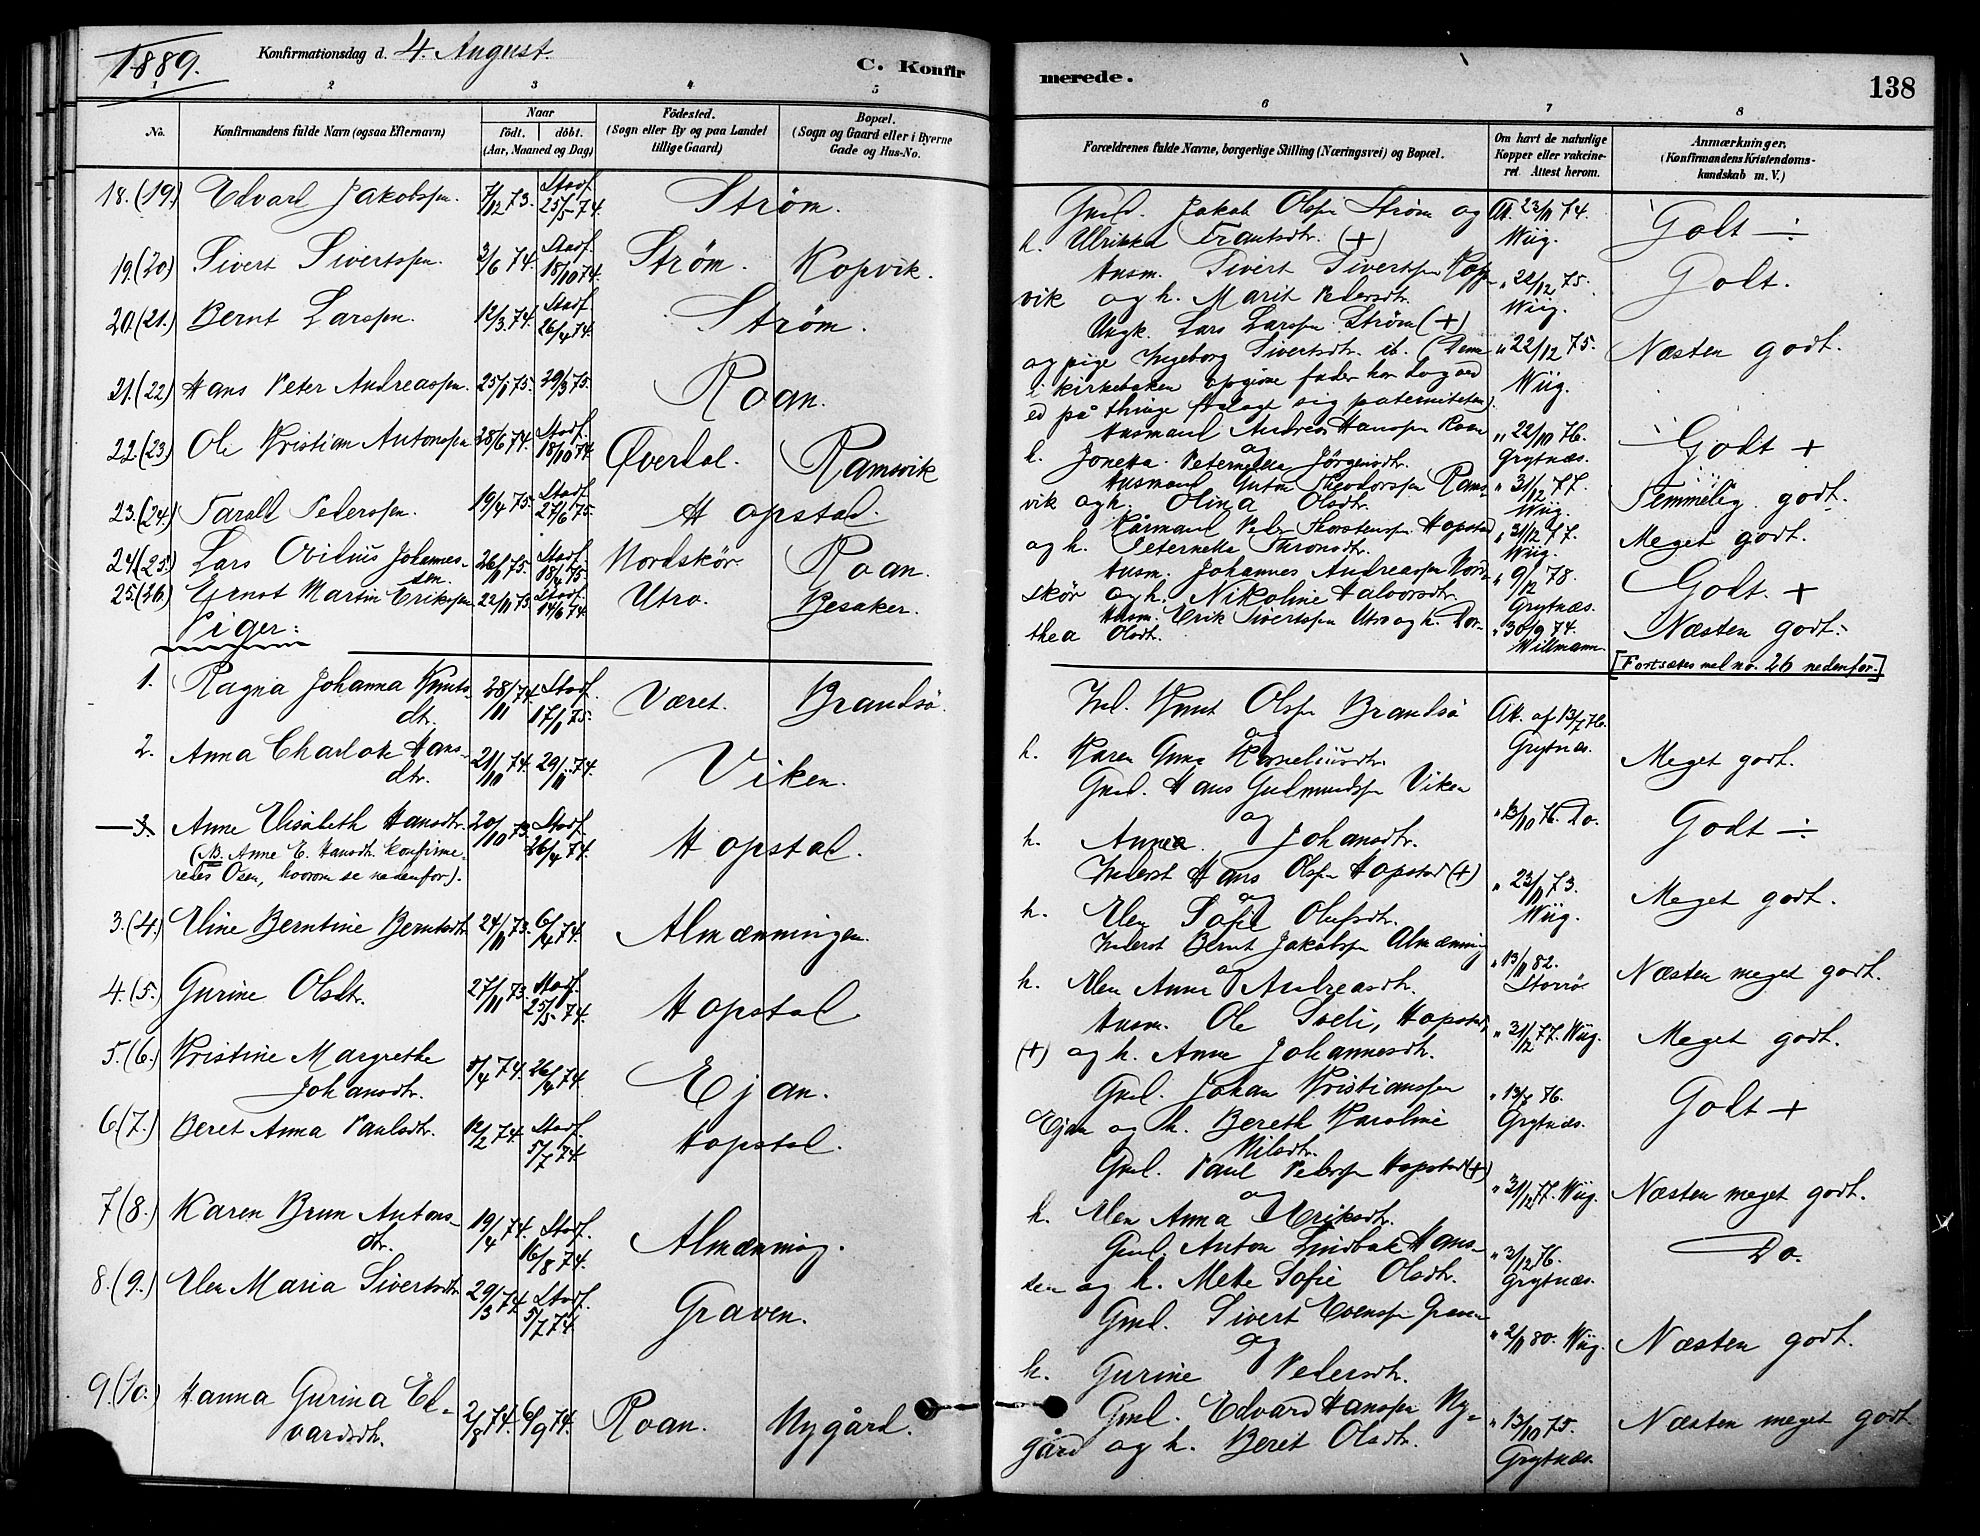 1889.
Konfirmationsdag d. 4. August.
C. Konfir
merede.
138
1 2 3 4 5 6 7 8
No.
Konfirmandens fulde Navn (ogsaa Efternavn)
Naar
födt. döbt.
(Aar, Maaned og Dag)
Födested.
(Sogn eller By og paa Landet
tillige Gaard)
Bopæl.
(Sogn og Gaard eller i Byerne
Gade og Hus-No.
Forældrenes fulde Navne, borgerlige Stilling (Næringsvei) og Bopæl.
Om havt de naturlige
Kopper eller vakcine-
ret. Attest herom.
Anmærkninger.
(Konfirmandens Kristendoms-
kundskab m. V.)
18. (19.) Edvard Jakobssen. 7/12 73. Stadf. 25/5 74. Strøm.
Gmd. Jakob Olssen Strøm og
h. Ulrikka Frantsdtr. (+)
At. 23/11 74.
Wiig.
Godt ÷
19. (20.) Sivert Sivertssen. 3/6 74. Stadf. 18/10 74. Strøm. Kopvik.
Husm. Sivert Sivertssen Kop-
vik og h. Marit Pedersdtr.
" 22/12 75.
Wiig.
Godt.
20. (21.) Bernt Larssen. 12/3 74. Stadf. 26/4 74. Strøm.
Ungk. Lars Larssen Strøm (+)
og pige Ingeborg Sivertsdtr. ib. (Denne
i kirkebøken opgivne fader har dog ved
ed på thinge fralagt sig paterniteten).
" 22/12 75.
Wiig.
Næsten godt.
21. (22.) Hans Peter Andreassen. 25/1 75. 29/3 75. Roan.
Husmand Andreas Hanssen Roan
og
h. Jonetta Peternella Jörgensdtr.
" 22/10 76.
Grytnæs.
Godt +
22. (23.) Ole Kristian Antonssen 28/6 74. Stadf. 18/10 74. Øverdal. Ramsvik
Husmand Anton Theodorssen Rams-
vik og h. Olina Olsdtr.
" 31/12 77.
Wiig.
Temmelig godt.
23. (24.) Tarald Pederssen. 19/4 75. Stadf. 27/6 75. Hopstad.
Kårmand Peder Thorstenssen Hopstad
og h. Peternella Thronsdtr.
" 31/12 77.
Wiig.
Meget godt.
24. (25.) Lars Ovidius Johannes-
sen. 26/1 75. Stadf. 18/4 75. Nordskör. Roan.
Husm. Johannes Andreassen Nord-
skör og h. Nikoline Halvorsdtr.
" 9/12 78.
Grytnæs.
Godt. +
25. (26.) Ejnot Martin Erikssen 22/11 73. Stadf. 14/6 74. Utro. Besaker.
Husm. Erik Sivertssen Utro og h. Dor-
thea Olsdt.
" 30/9 74.
Willmann.
Næsten godt.
[Fortsættes ved no. 26 nedenfor.]
Piger:
1. Ragna Johanna Knuts-
dtr. 28/11 74. Stadf. 17/1 75. Været. Brandsö.
Ind. Knut Olssen Brandsö
og
h. Karen Anna Korneliusdtr.
Att. af 13/7 76.
Grytnæs.
Meget godt.
2. Anna Charlote Hans-
dtr. 21/10 74. 29/11 74. Viken.
Gmd. Hans Gudmundssen Viken
og
h. Anna Johansdtr.
" 13/10 76. Do.
Godt ÷
3. Anne Elisabeth Hansdtr. 20/10 73. Stadf. 26/4 74. Hopstad.
(NB. Anne E. Hansdtr. konfirme-
redes Osen, hvorom se nedenfor).
Inderst Hans Olssen Hopstad (+)
og
h. Elen Sofie Olufsdtr.
" 23/11 73.
Wiig.
Meget godt.
3. (4.) Eline Berntine Berntsdtr. 24/11 73. 6/4 74. Almænningen.
Inderst Bernt Jakobssen Almænning
og
h. Elen Anna Andreasdtr.
" 13/11 82.
Storrö.
Næsten meget godt.
4. (5.) Gurine Olsdtr. 27/11 73. Stadf. 25/5 74. Hopstad.
Husm. Ole Sveli, Hopstad
(+) og h. Anne Johannesdtr.
" 31/12 77. Wiig.
Meget godt.
5. (6.) Kristine Margrethe
Johansdtr. 5/4 74. 26/4 74. Ejan.
Gmd. Johan Kristianssen
Ejan og h. Bereth Karoline
Nilsdtr.
" 13/7 76.
Grytnæs.
Godt +
6. (7.) Beret Anna Paulsdtr. 12/2 74. Stadf. 5/7 74. Hopstad.
Gmd. Paul Pederssen Hopstad (+)
og
h. Elen Anna Eriksdtr.
" 31/12 77. Wiig.
Næsten meget godt.
7 (8.) Karen Brun Antons-
dtr. 19/4 74. Stadf. 16/8 74. Almænning.
Gmd. Anton Lindbak Hans-
sen og h. Mette Sofie Olsdtr.
" 3/12 76.
Grytnæs.
Do.
8. (9.) Elen Maria Sivertsdtr. 29/3 74. Stadf. 5/7 74. Graven.
Gmd. Sivert Evenssen Graven
og
h. Gurine Pedersdtr.
" 2/11 80. Wiig.
Næsten godt.
9. (10.) Hanna Gurina Ed-
vardsdtr. 2/8 74. 6/9 74. Roan. Nygård.
Gmd. Edvard Hanssen Ny-
gård og h. Beret Olsdtr.
" 13/10 75.
Grytnæs.
Næsten meget godt